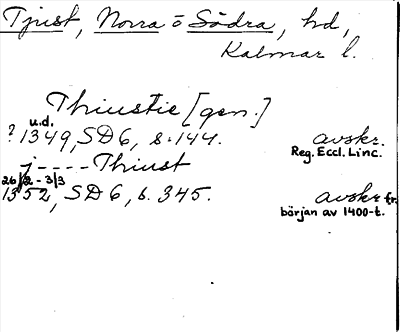 Tjust, Norra o Södra, hd,
Kalmar l.
Thiustie [gen.]
u.d.
? 1349, SD 6, s. 144. avskr.
Reg. Eccl. Linc.
j - - - - Thiust
26/2 - 3/3
1352, SD 6, s. 345. avskr. fr.
början av 1400-t.